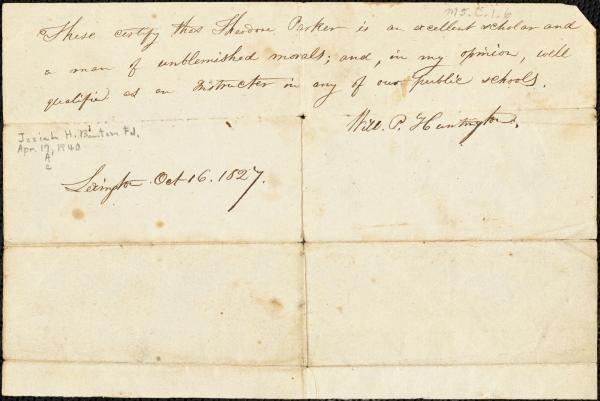 Ms.C.1.6
These certify that Theodore Parker is an excellent scholar and
a man of unblemished morals; and, in my opinion, well
qualified as an Instructer in any of our public schools.
Will. P. Huntington.
Josiah H. Benton Fd.
Apr. 17, 1940
A
2
Lexington Oct 16. 1827.